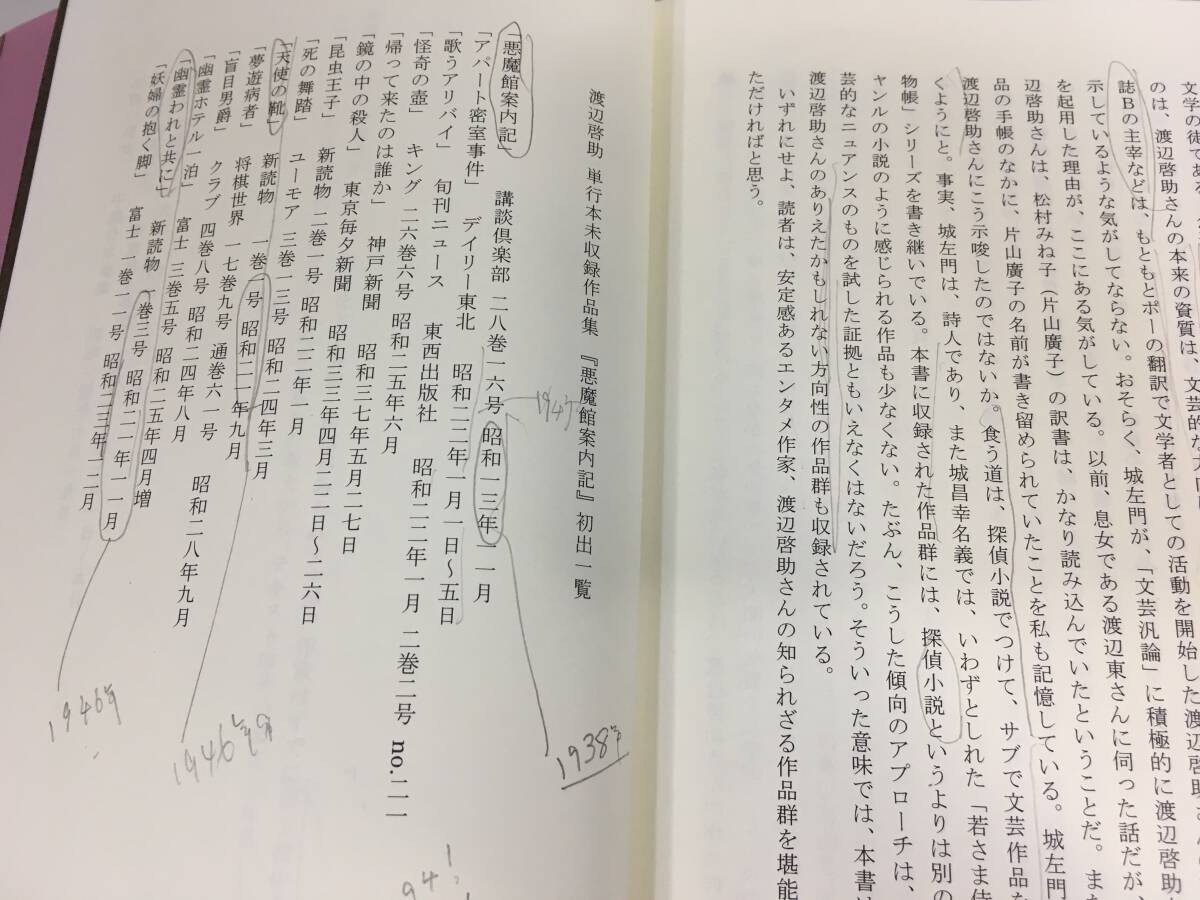 文学の徒である
のは、渡辺啓助さんの本来の資質は、文芸的な方向
誌Bの主宰などは、もともとポーの翻訳で文学者としての活動を開始した渡辺啓助さ
示しているような気がしてならない。おそらく、城左門が、「文芸汎論」に積極的に渡辺啓
を起用した理由が、ここにある気がしている。以前、息女である渡辺東さんに伺った話だが、
辺啓助さんは、松村みね子（片山廣子）の訳書は、かなり読み込んでいたということだ。また
品の手帳のなかに、片山廣子の名前が書き留められていたことを私も記憶している。城左門
渡辺啓助さんにこう示唆したのではないか。食う道は、探偵小説でつけて、サブで文芸作品を
くようにと。事実、城左門は、詩人であり、また城昌幸名義では、いわずとしれた「若さま侍
物帳」シリーズを書き継いでいる。本書に収録された作品群には、探偵小説というよりは別の
ャンルの小説のように感じられる作品も少なくない。たぶん、こうした傾向のアプローチは、
芸的なニュアンスのものを試した証拠ともいえなくはないだろう。そういった意味では、本書は
渡辺啓助さんのありえたかもしれない方向性の作品群も収録されている。
いずれにせよ、読者は、安定感あるエンタメ作家、渡辺啓助さんの知られざる作品群を堪能
ただければと思う。
渡辺啓助　単行本未収録作品集　『悪魔館案内記』　初出一覧
「悪魔館案内記」　講談倶楽部　二八巻一六号　昭和一三年一一月
「アパート密室事件」　デイリー東北　昭和二二年一月一日～五日
「歌うアリバイ」　旬刊ニュース　東西出版社　昭和二二年一月　二巻二号　no.二一
「怪奇の壺」　キング　二六巻六号　昭和二五年六月
「帰って来たのは誰か」　神戸新聞　昭和三七年五月二七日
「鏡の中の殺人」　東京毎夕新聞　昭和三三年四月二二日～二六日
「昆虫王子」　新読物　二巻一号　昭和二二年一月
「死の舞踏」　ユーモア　三巻一三号　昭和二四年三月
「天使の靴」　新読物　一巻一号　昭和二一年九月
「夢遊病者」　将棋世界　一七巻九号　通巻六一号　昭和二八年九月
「盲目男爵」　クラブ　四巻八号　昭和二四年八月
「幽霊ホテル一泊」　富士　三巻五号　昭和二五年四月増
「幽霊われと共に」　新読物　一巻三号　昭和二一年一一月
「妖婦の抱く脚」　富士　一巻一一号　昭和二三年一二月
1947
1938年
1946年9月
1946年